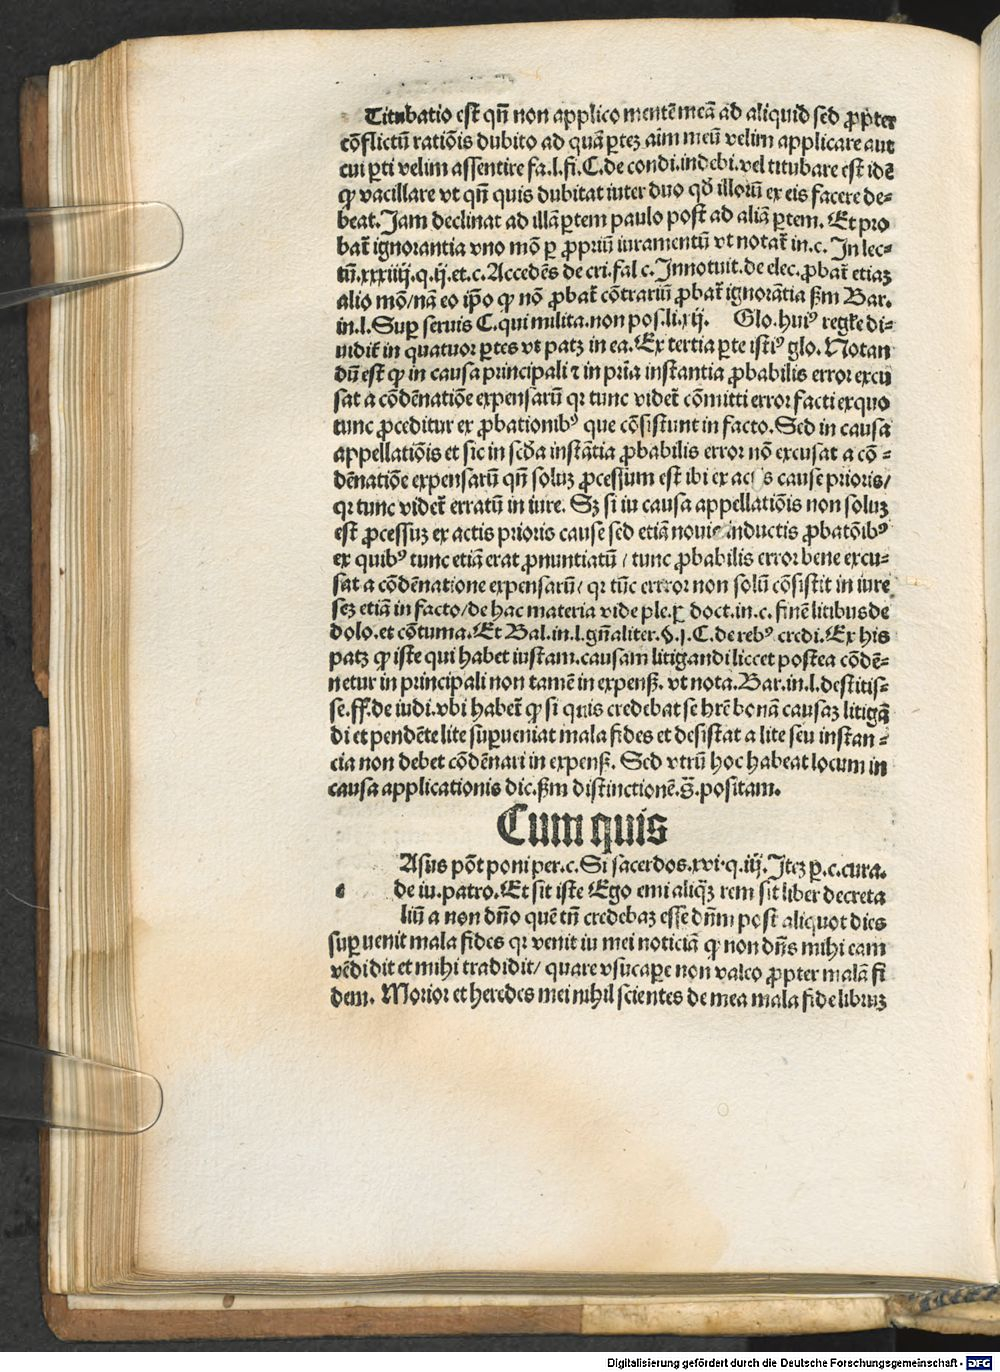 Titubatio est qñ non applico mentē meā ad aliquid sed ꝓpter
cōflictū ratiōis dubito ad quā ꝑtez aim meū velim applicare aut
cui ꝑti velim assentire fa.l.fi.C.de condi.indebi.vel titubare est idē
ꝙ vacillare vt qñ quis dubitat inter duo qđ illorū ex eis facere de⸗
beat. Jam declinat ad illā ꝑtem paulo post ad aliā ꝑtem. Et pro
bat̄ ignorantia vno mō ꝑ ꝓpriū iuramentū vt notat̄ in.c. In lec⸗
tū.xxxiiij.q.ij.et.c.Accedēs de cri.fal c.Innotuit.de elec.ꝓbat̄ etiaz
alio mō/nā eo ip̄o ꝙ nō ꝓbat̄ cōtrariū ꝓbat̄ ignorātia ẜm Bar.
in.l.Suꝑ seruis C.qui milita.non pos.li.xij. Glo.huiꝰ regl̄e di⸗
uidit̄ in quatuor ꝑtes vt patz in ea. Ex tertia ꝑte istiꝰ glo. Notan
dū est ꝙ in causa principali ⁊ in pr̄ia instantia ꝓbabilis error excu
sat a cōdēnatiōe expensarū qr tunc videt̄ cōmitti error facti exquo
tunc ꝓceditur ex ꝓbationibꝰ que cōsistunt in facto. Sed in causa
appellatiōis et sic in scđa instātia ꝓbabilis error nō excusat a cō⸗
dēnatiōe expensarū qñ soluz ꝓcessum est ibi ex actis cause prioris/
qr tunc videt̄ erratū in iure. Sz si iu causa appellatiōis non soluz
est ꝓcessuz ex actis prioris cause sed etiā nouis inductis ꝓbatōibꝰ
ex quibꝰ tunc etiā erat ꝓnuntiatū / tunc ꝓbabilis error bene excu⸗
sat a cōdēnatione expensarū/ qr tūc errror non solū cōsistit in iure
sez etiā in facto/de hac materia vide ple.ꝑ doct.in.c. finē litibus de
dolo.et cōtuma.Et Bal.in.l.gñaliter.§.j.C.de rebꝰ credi.Ex his
patz ꝙ iste qui habet iustam.causam litigandi liccet postea cōdē⸗
netur in principali non tamē in expenẜ. vt nota.Bar.in.l.destitis⸗
se.ff.de iudi.vbi habet̄ ꝙ si quis credebat se hr̄e bonā causaz litigā
di et pendēte lite suꝑueniat mala fides et desistat a lite seu instan⸗
cia non debet cōdēnari in expenẜ. Sed vtrū hoc habeat locum in
causa applicationis dic.ẜm distinctionē.s̄.positam.
Cum quis
Asus pōt poni per.c.Si sacerdos.xvi.q.iij. Itez ꝑ.c.cura.
c de iu.patro.Et sit iste Ego emi aliq̄z rem sit liber decreta
liū a non dño quē tñ credebaz esse dñm post aliquot dies
suꝑuenit mala fides qr venit iu mei noticiā ꝙ non dñs mihi eam
vēdidit et mihi tradidit/ quare vsucaꝑe non valeo ꝓpter malā fi
dem. Morior et heredes mei nihil scientes de mea mala fide libruz
Digitalisierung gefördert durch die Deutsche Forschungsgemeinschaft - DFG